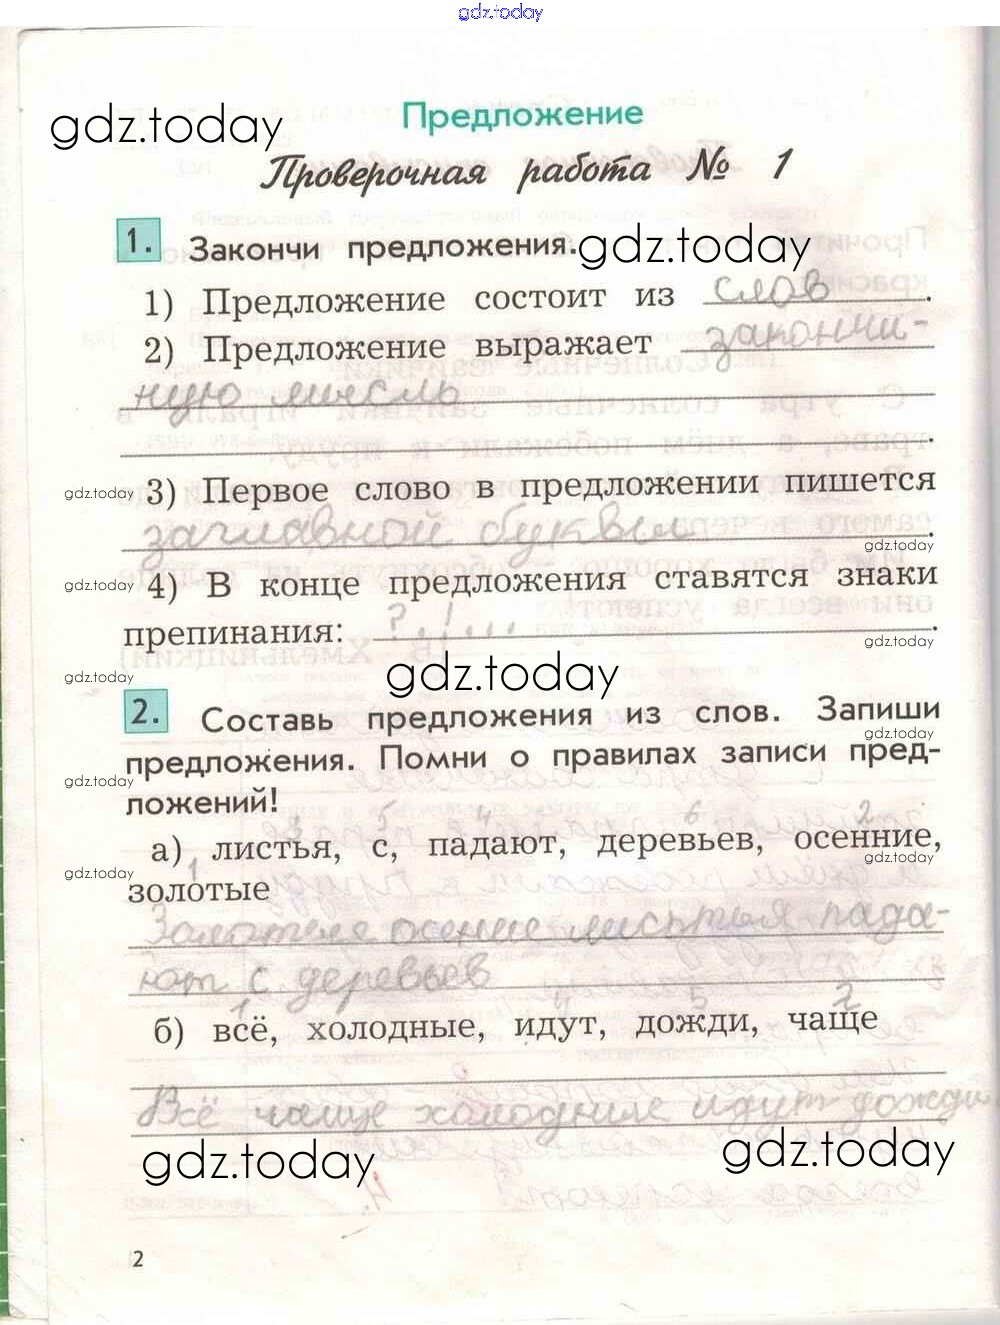 gdz.today
gdz.today
Предложение
Проверочная работа № 1
1. Закончи предложения. gdz.today
1) Предложение состоит из слов.
2) Предложение выражает закончи-
ную мысль
.
gdz.today 3) Первое слово в предложении пишется
заглавной буквы.
gdz.today
gdz.today 4) В конце предложения ставятся знаки
препинания: ? . ! ... .
gdz.today
gdz.today
gdz.today
2. Составь предложения из слов. Запиши
gdz.today
предложения. Помни о правилах записи пред-
gdz.today
ложений!
3 5 4 6 2
а) листья, с, падают, деревьев, осенние,
gdz.today
gdz.today
1
золотые
Золотые осение листья пада-
ют с деревьев
1 4 5 2
б) всё, холодные, идут, дожди, чаще
Всё чаще холодные идут дожди
gdz.today
gdz.today
2